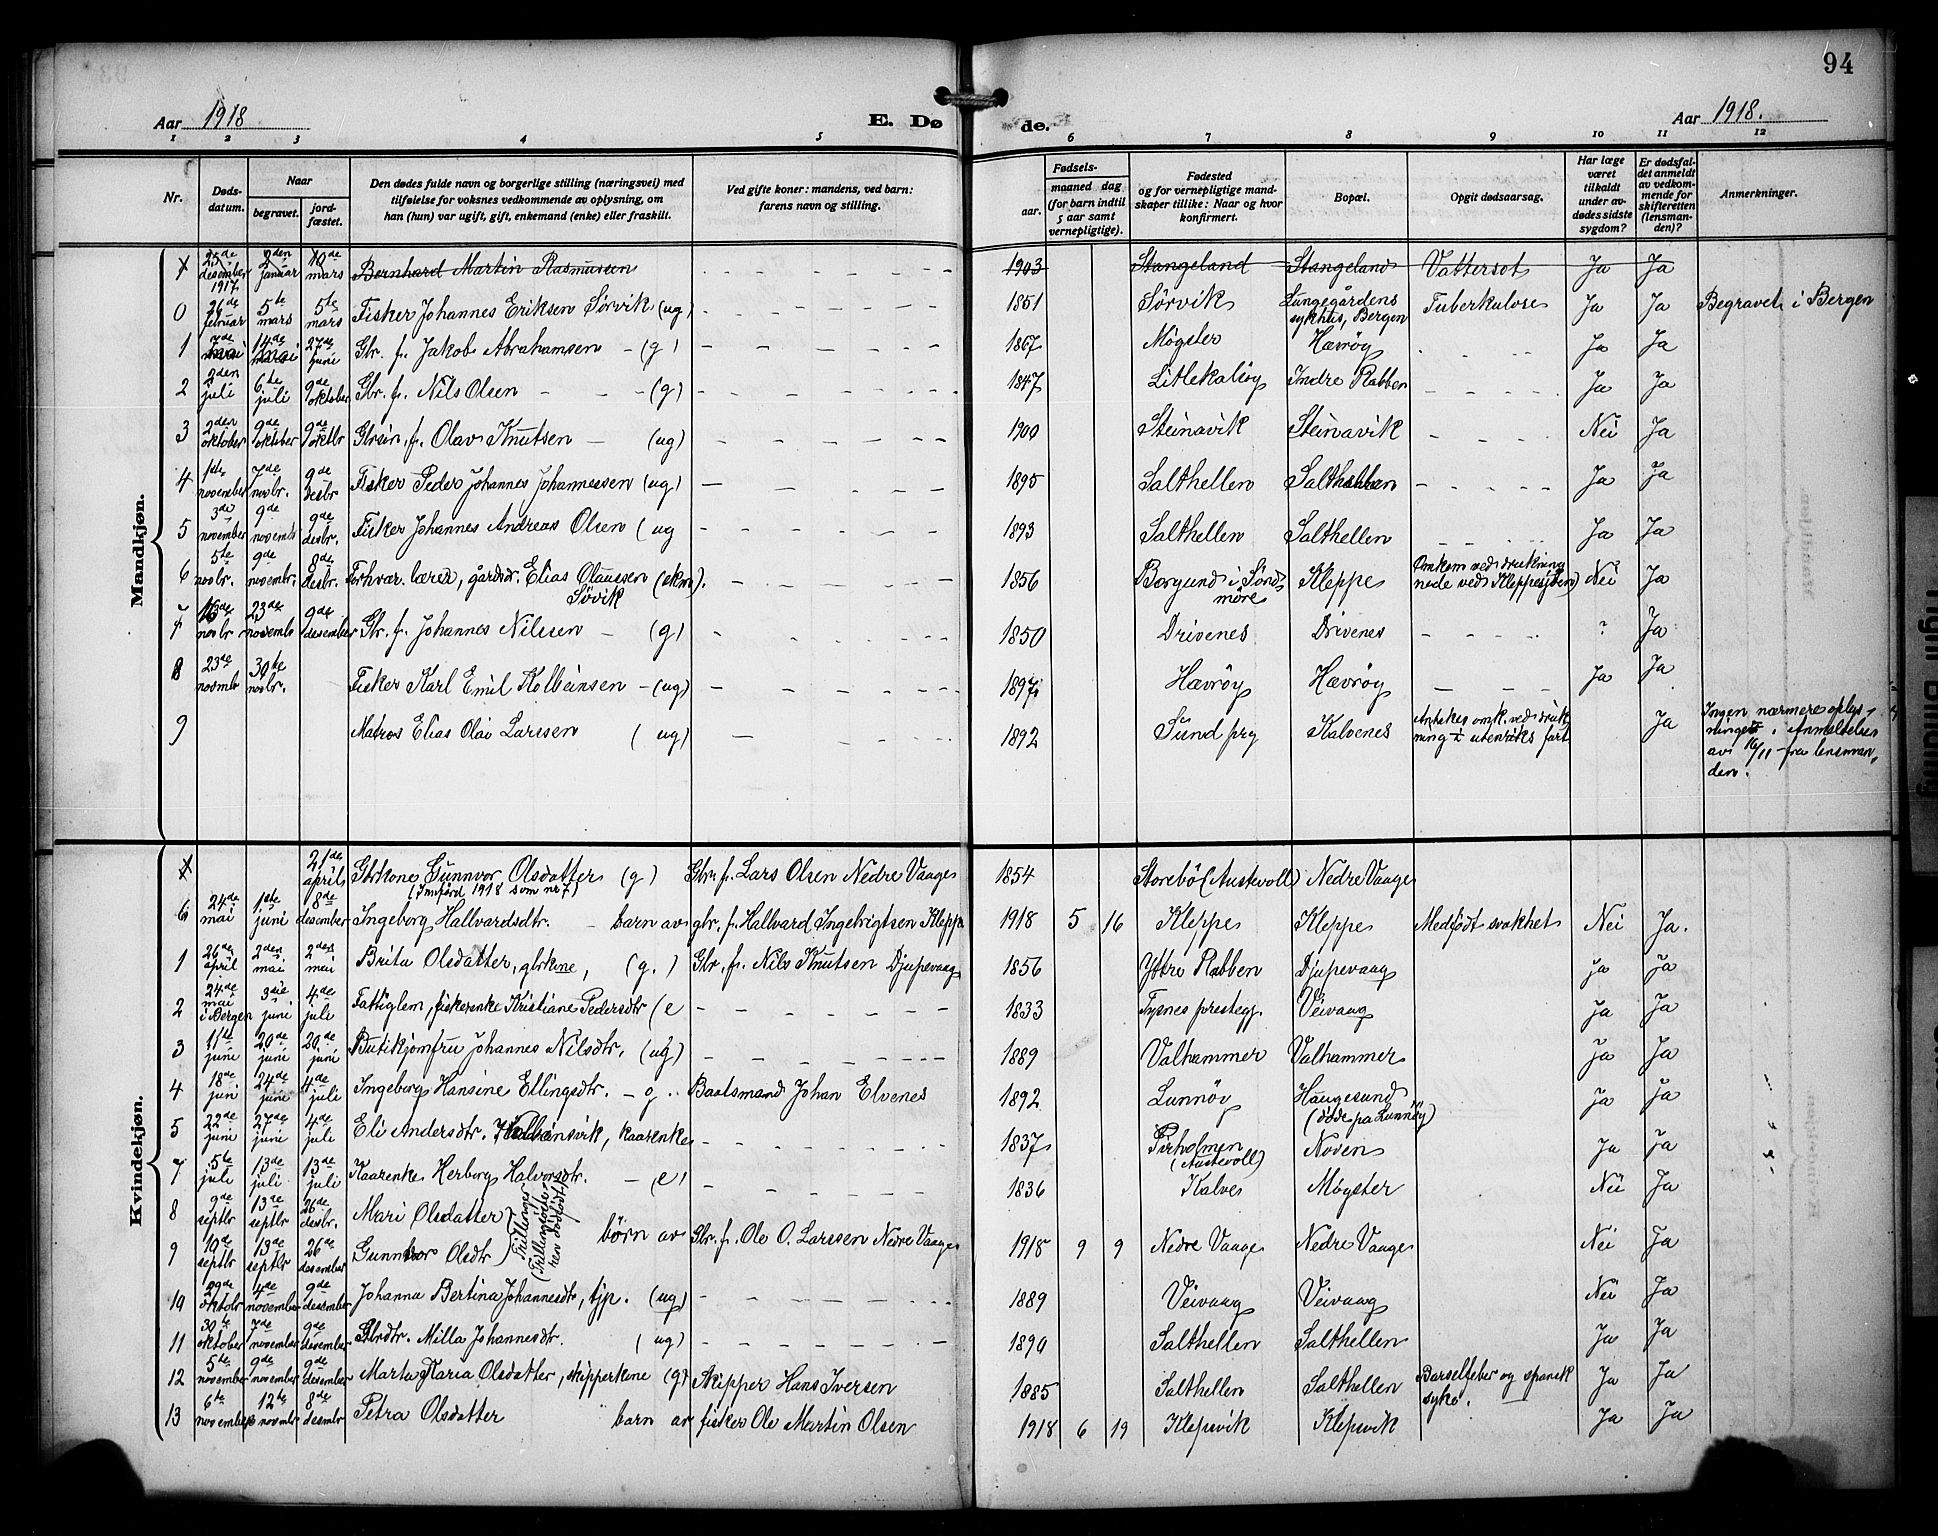 94
Aar 1918 E. Dø de. Aar 1918.
1 2 3 4 5 6 7 8 9 10 11 12
Nr. Døds-datum. Naar begravet. jord-fæstet. Den dødes fulde navn og borgerlige stilling (næringsvei) med tilføielse for voksnes vedkommende av oplysning, om han (hun) var ugift, gift, enkemand (enke) eller fraskilt. Ved gifte koner: mandens, ved barn: farens navn og stilling. Fødsels- aar. maaned dag (for barn indtil 5 aar samt vernepligtige). Fødested og for vernepligtige mandskaper tillike: Naar og hvor konfirmert. Bopæl. Opgit dødsaarsag. Har læge været tilkaldt under avdødes sidste sygdom? Er dødsfaldet anmeldt av vedkommende for skifteretten (lensmanden)? Anmerkninger.
Mandkjøn.
25de desember 1917 2den januar 10de mars Bernhard Martin Rasmussen 1903 Stangeland Stangeland Vattersot Ja Ja
0 26de februar 5te mars 5te mars Fisker Johannes Eriksen Sørvik (ug) 1851 Sørvik Lungegårdens sykhus, Bergen Tuberkulose Ja Ja Begravet i Bergen
1 7de mai 14de mai 27de juni Gbr. f. Jakob Abrahamsen - (g) 1867 Møgster Hævrøy Ja Ja
2 2den juli 6te juli 9de oktober Gbr. f. Nils Olsen - (g) 1847 Litlekalsøy Indre Rabben Ja Ja
3 2den oktober 9de oktober 9de oktbr Gbrsøn, f. Olav Knutsen - (ug) 1900 Steinavik Steinavik Nei Ja
4 1ste november 7de novbr. 9de desbr Fisker Peder Johannes Johannessen (ug) 1895 Salthellen Salthellen Ja Ja
5 3de november 9de novemb 9de desbr. Fisker Johannes Andreas Olsen (ug 1893 Salthellen Salthellen Ja Ja
6 5te novbr. 9de novembr. 8de desbr. Forhvær. lærer, gårdsdr. Elias Olaussen Søvik (ekm). 1856 Borgund i Søndmøre Kleppe Omkom ved drukning nede ved Kleppesjøen) Nei Ja
7 16de novbr 23de novembr 9de desember Gbr. f. Johannes Nilssen - (g) 1850 Drivenes Drivenes ? Ja
8 23de novmbr 30te novbr. Fisker Karl Emil Kolbeinsen - (ug) 1897 Hævrøy Hævrøy Ja Ja
9 Matros Elias Olai Larssen (ug) 1892 Sund prg Kalvenes Antakes omk. ved drukning i utenriks fart Ja Ingen nærmere oplysninger i Anmeldelse av 16/11 fra lensmanden.
Kvindekjøn.
21de april Gbrkone Gunnvor Olsdatter (g) Gbr. f. Lars Olsen Nedre Vaage 1854 Storebø (Austevoll) Nedre Vaage
(Innførd 1918 som nr 7)
6 24de mai 1ste juni 8de desember Ingeborg Hallvardsdtr. - barn av gbr. f. Hallvard Ingebrigtsen Kleppe 1918 5 16 Kleppe Kleppe Medfødt svakhet Nei Ja.
1 26de april 2den mai 2den mai Brita Olsdatter, gbrkone, (g.) Gbr. f. Nils Knutsen Djupevaag 1856 Yttre Rabben Djupevaag ja ja
2 24de mai i Bergen 3die juni 4de juli Fattiglem, fiskerenke Kristiane Pedersdtr (e 1833 Tysnes prestegj. Veivaag ja Ja
3 11te juni 20de juni 20de juni Butikjomfru Johannes Nilsdtr. (ug) 1889 Valhammer Valhammer ja Ja
4 18de juni 24de juni 4de juli Ingeborg Hansine Ellingsdtr. - g .. Baatsmand Johan Elvenes 1892 Lunnøy Haugesund (døde pa Lunnøy) ja Ja
5 22de juni 27de juni 4de juli Eli Andersdtr. Kolbeinsvik, kaarenke 1837 Pirholmen (Austevoll) Noven Ja ja
7 5te juli 13de juli 13de juli Kaarenke Herborg Halvorsdtr. - (e) 1836 Kalve Møgster Nei Ja
8 9de septbr 13de septbr 26de desbr. Mari Olsdatter) Trillinger (Trillingsøsteren dødfødt)
9 10de septbr 13de septbr 26de desember Gunnvor Olsdtr) børn av Gbr. f. Ole O. Larssen Nedre Vaage 1918 9 9 Nedre Vaage Nedre Vaage Nei Ja
10 29de oktobr 4de november 9de desember Johanna Bertina Johannesdtr, tjp. (ug) 1889 Veivaag Veivaag Nei Ja
11 30te oktober 7de november 9de desember Gbrdtr. Milla Johannesdtr. (ug) 1890 Salthellen Salthellen Ja Ja
12 5te november 9de november 9de desember Marta Maria Olsdatter, skipperkone (g) Skipper Hans Iversen 1885 Salthellen Salthellen Barselfeber og spansk syke. Ja Ja
13 6te november 12te novmbr 8de desmbr Petra Olsdatter barn av fisker Ole Martin Olsen 1918 6 19 Klepsvik Klepsvik Ja Ja